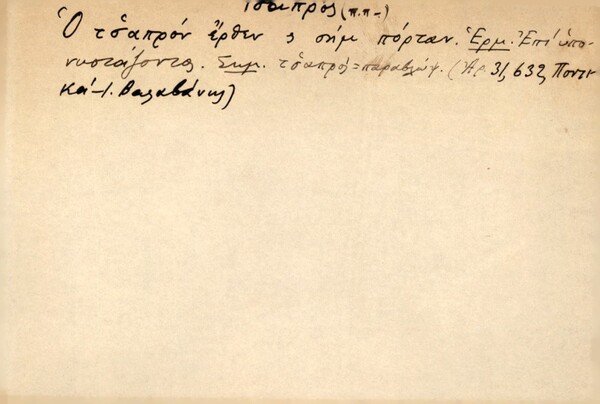 τσαπρός (π.π-)
Ὁ τσ̌απρόν ἔρθεν ς σήμ πόρταν. Ἑρμ. Ἐπί ὑπο-
νυστάζοντος. Σημ. τσ̌απρός = παραβλώψ. (Ἀρ. 31, 632, Ποντι
κά - Ι. Βαλαβάνης)